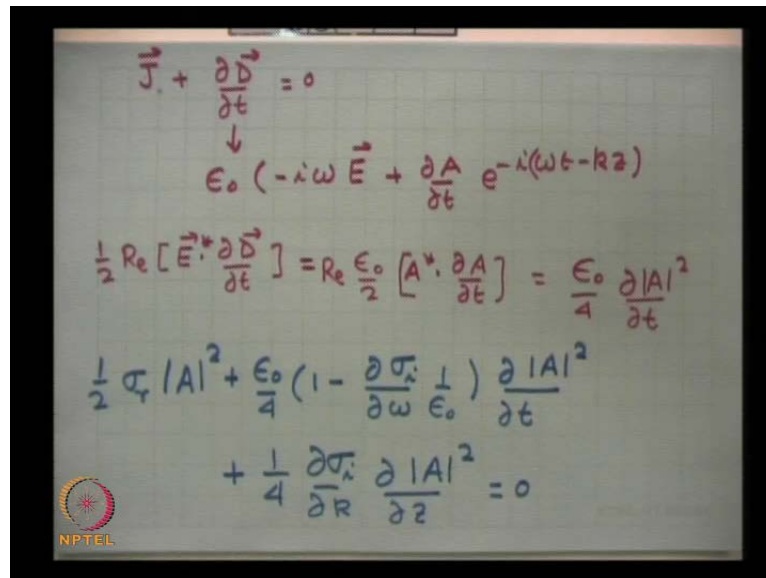 J⃗ + ∂D⃗/∂t = 0
↓
ϵ₀ (-iω E⃗ + ∂A/∂t e^{-i(ωt-kz)}
1/2 Re [E⃗*· ∂D⃗/∂t] = Re ϵ₀/2 [A*· ∂A/∂t] = ϵ₀/4 ∂|A|²/∂t
1/2 σᵣ |A|² + ϵ₀/4 (1 - ∂σᵢ/∂ω 1/ϵ₀) ∂|A|²/∂t
+ 1/4 ∂σᵢ/∂k ∂|A|²/∂z = 0
NPTEL